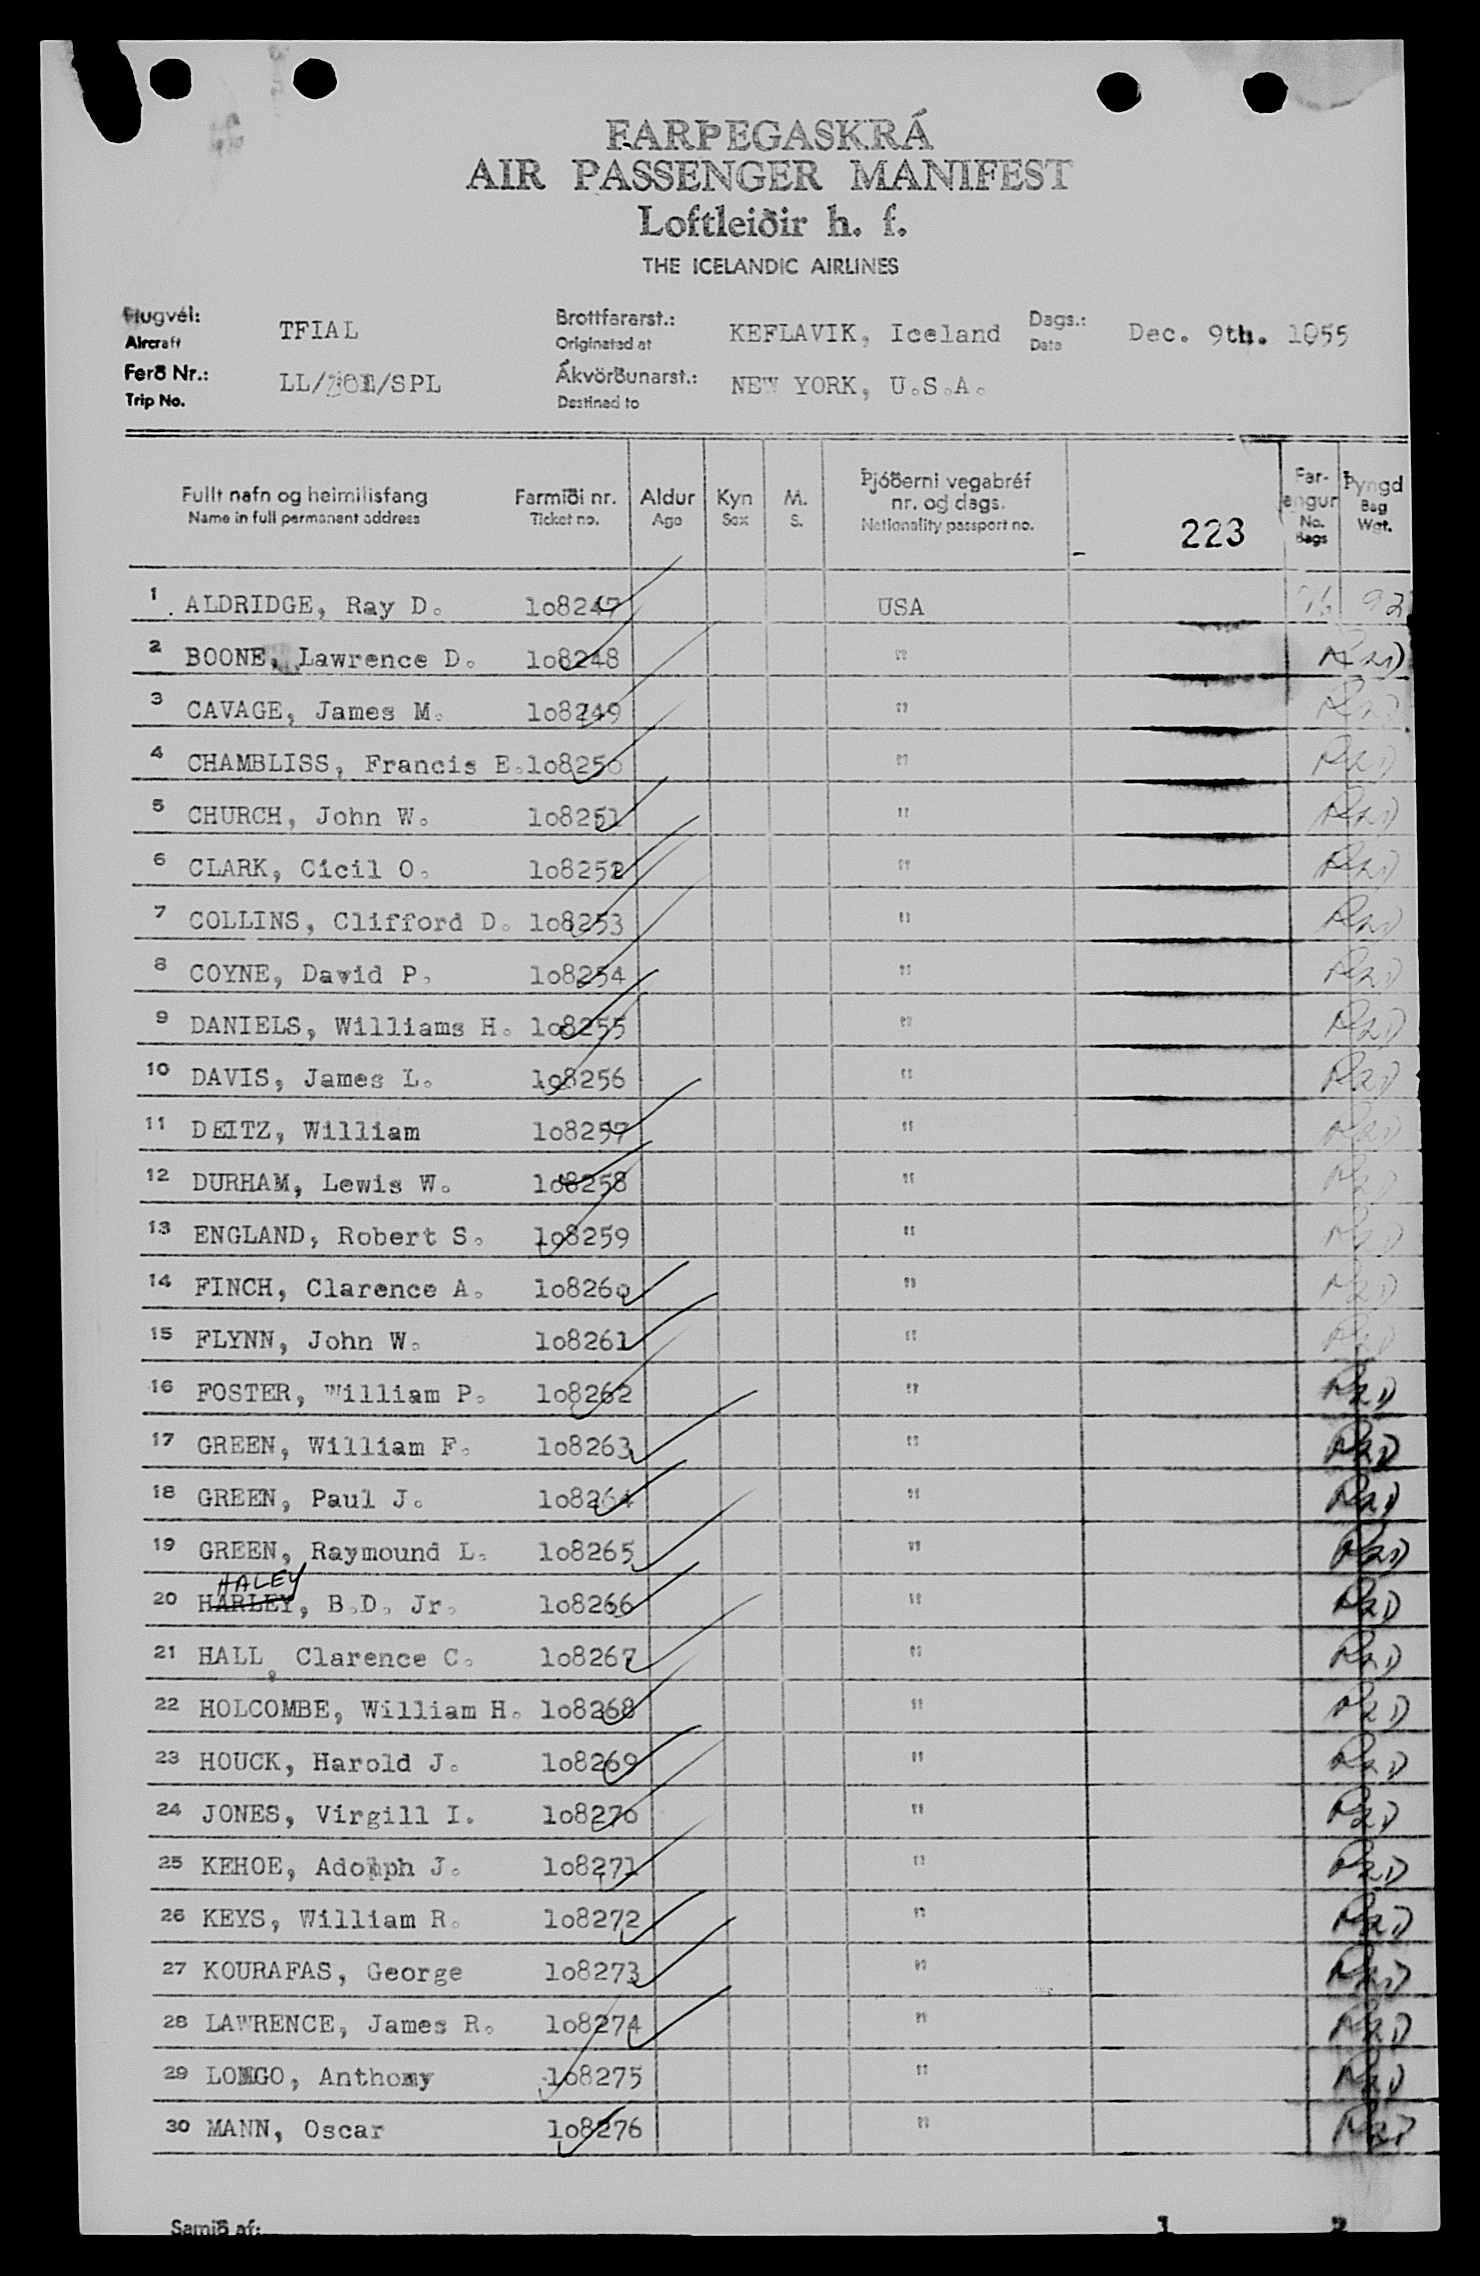 FARÞEGASKRÁ
AIR PASSENGER MANIFEST
Loftleiðir h. f.
THE ICELANDIC AIRLINES
Flugvél: TFIAL Brottfararst.: KEFLAVIK, Iceland Dags.: Dec. 9th. 1955
Aircraft Originated at Date
Ferð Nr.: LL/ /SPL Ákvörðunarst.: NEW YORK, U.S.A.
Trip No. Destined to
Fullt nafn og heimilisfang Farmiði nr. Aldur Kyn M. Þjóðerni vegabréf nr. og dags. 223 Far-angur Þyngd
Name in full permanent address Ticket no. Age Sex S. Nationality passport no. No. Bags Bag Wgt.
1 ALDRIDGE, Ray D. 108247 USA 92
2 BOONE, Lawrence D. 108248 "
3 CAVAGE, James M. 108249 "
4 CHAMBLISS, Francis E. 108250 "
5 CHURCH, John W. 108251 "
6 CLARK, Cicil O. 108252 "
7 COLLINS, Clifford D. 108253 "
8 COYNE, David P. 108254 "
9 DANIELS, Williams H. 108255 "
10 DAVIS, James L. 108256 "
11 DEITZ, William 108257 "
12 DURHAM, Lewis W. 108258 "
13 ENGLAND, Robert S. 108259 "
14 FINCH, Clarence A. 108260 "
15 FLYNN, John W. 108261 "
16 FOSTER, William P. 108262 "
17 GREEN, William F. 108263 "
18 GREEN, Paul J. 108264 "
19 GREEN, Raymound L. 108265 "
HALEY
20 HARLEY, B.D. Jr. 108266 "
21 HALL, Clarence C. 108267 "
22 HOLCOMBE, William H. 108268 "
23 HOUCK, Harold J. 108269 "
24 JONES, Virgill I. 108270 "
25 KEHOE, Adolph J. 108271 "
26 KEYS, William R. 108272 "
27 KOURAFAS, George 108273 "
28 LAWRENCE, James R. 108274 "
29 LONGO, Anthony 108275 "
30 MANN, Oscar 108276 "
Samið af: 1 2